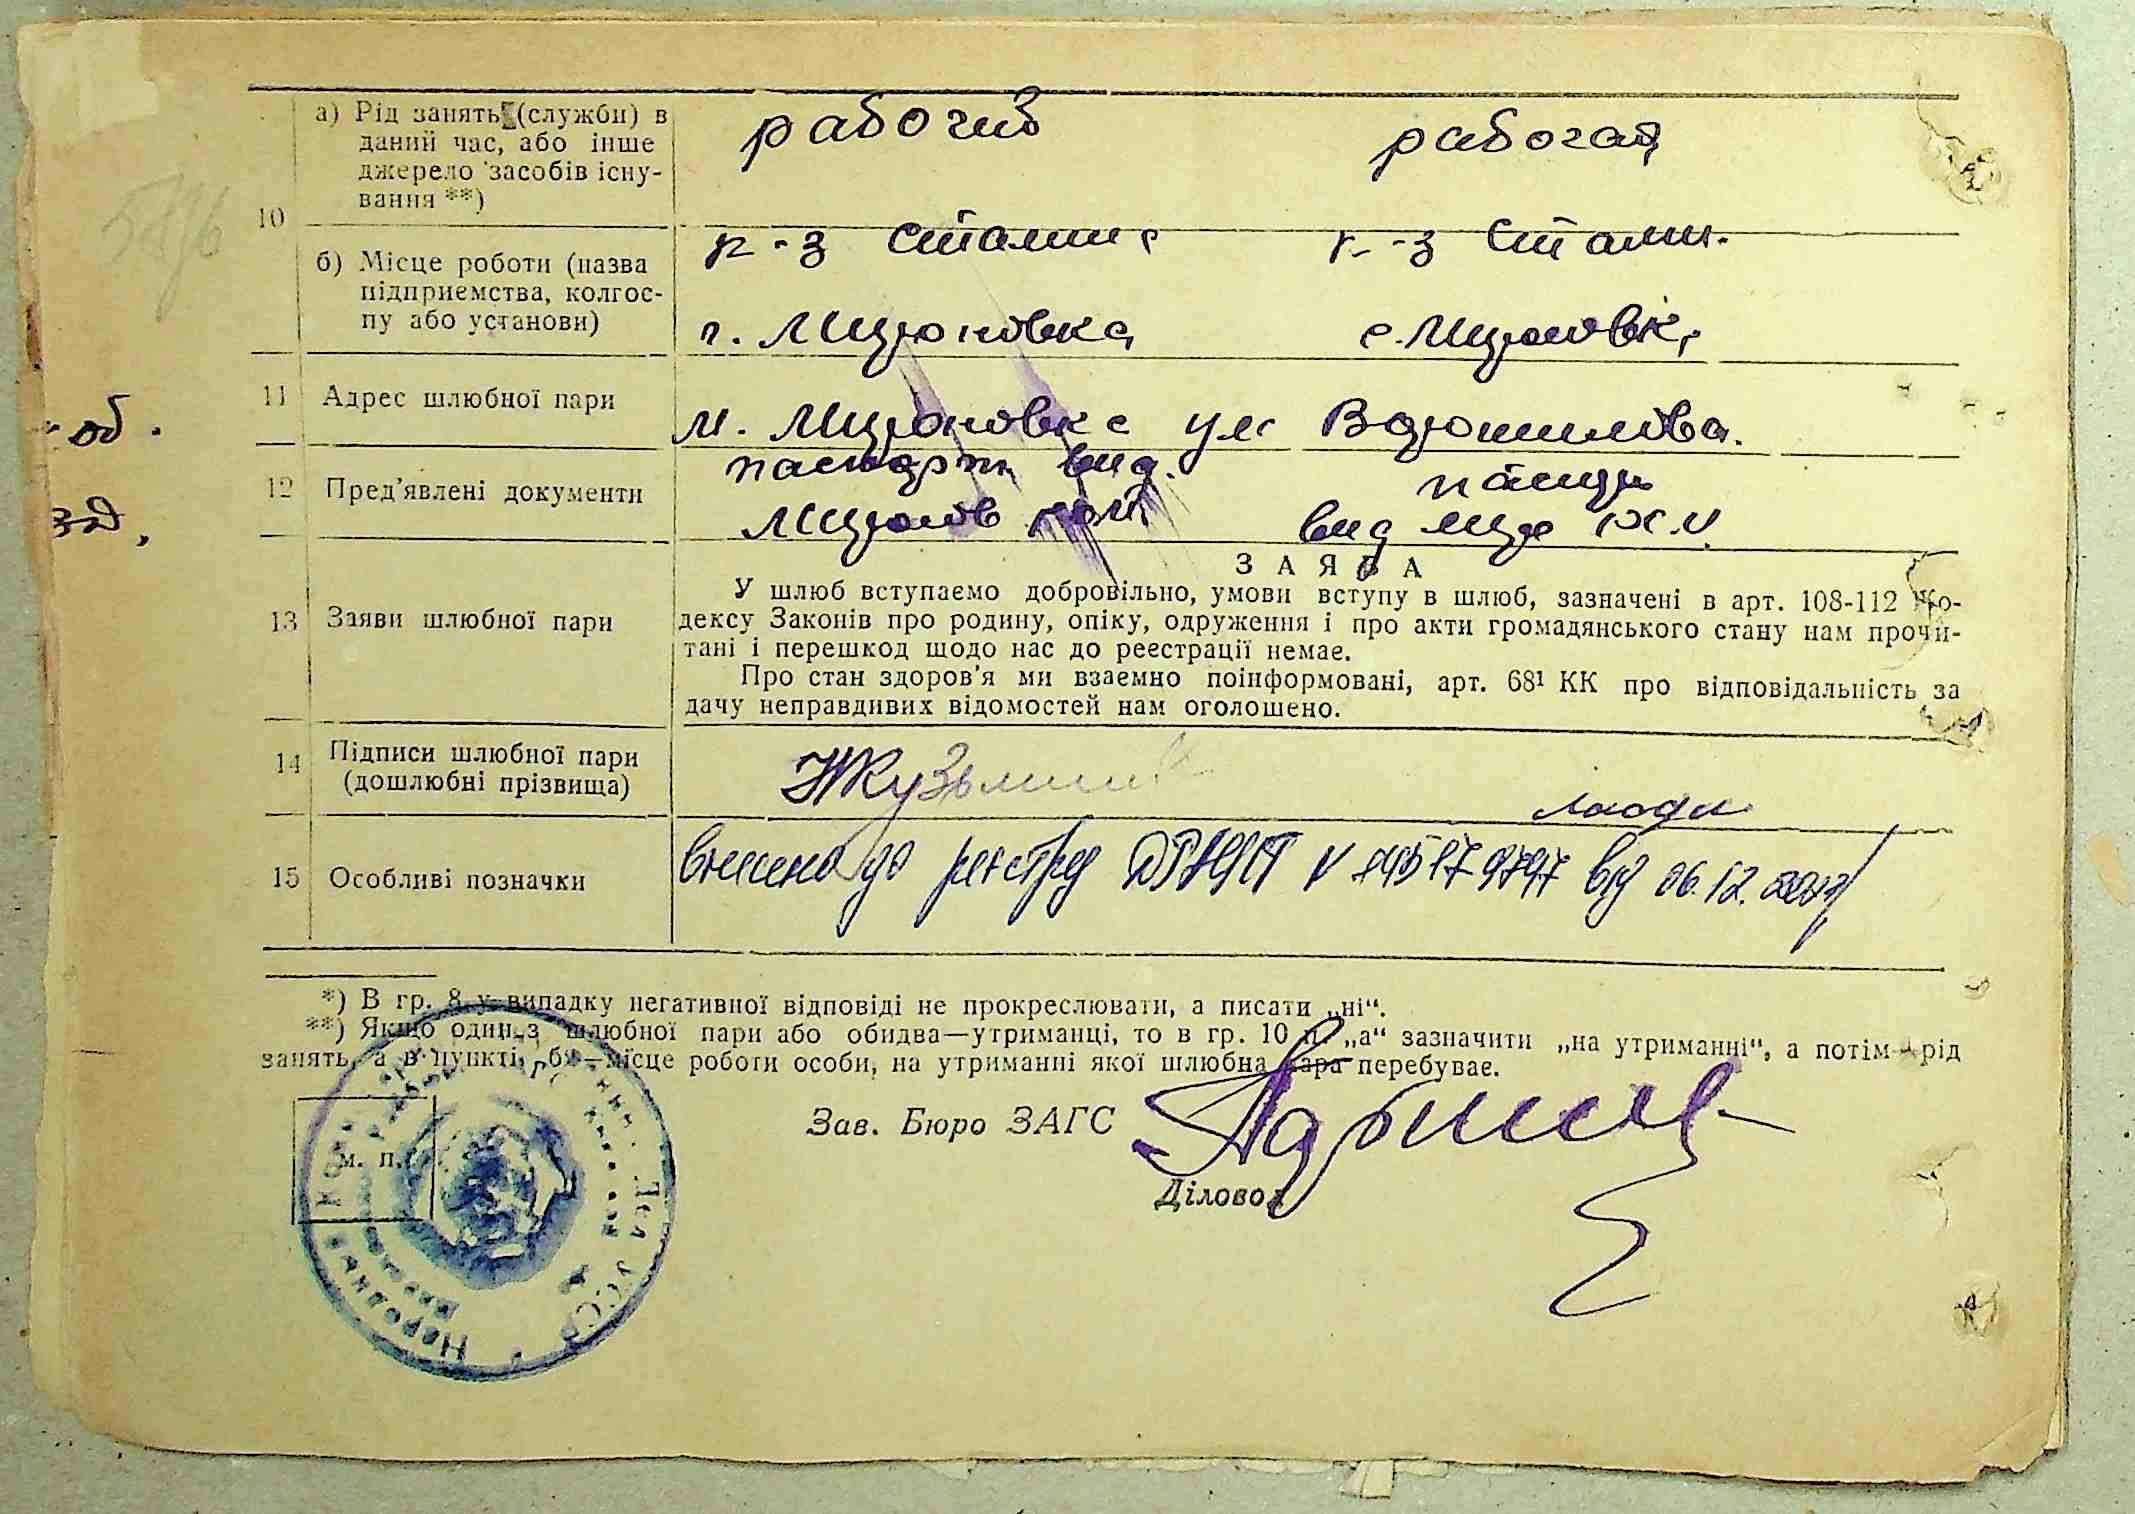 а) Рід занять (служби) в
даний час, або інше
джерело засобів існу-
вання **)
рабочий рабочая
10
б) Місце роботи (назва
підприємства, колгос-
пу або установи)
к-з Сталин к-з Сталин.
г. Мироновка с. Мироновк
11 Адрес шлюбної пари
м. Мироновка ул Ворошилова.
12 Пред'явлені документи
паспорт вид.
Миронов вид
об.
зд,
З А Я В А
13 Заяви шлюбної пари
У шлюб вступаємо добровільно, умови вступу в шлюб, зазначені в арт. 108-112 Ко-
дексу Законів про родину, опіку, одруження і про акти громадянського стану нам прочи-
тані і перешкод щодо нас до реєстрації немає.
Про стан здоров'я ми взаємно поінформовані, арт. 68¹ КК про відповідальність за
дачу неправдивих відомостей нам оголошено.
14 Підписи шлюбної пари
(дошлюбні прізвища)
15 Особливі позначки
внесено до реєстру ДРАЦСГ від 06.12.
*) В гр. 8 у випадку негативної відповіді не прокреслювати, а писати „ні“.
**) Якщо один з шлюбної пари або обидва—утриманці, то в гр. 10 п. „а“ зазначити „на утриманні“, а потім рід
занять, а в пункті „б“—місце роботи особи, на утриманні якої шлюбна пара перебуває.
Зав. Бюро ЗАГС
м. п.
Діловод